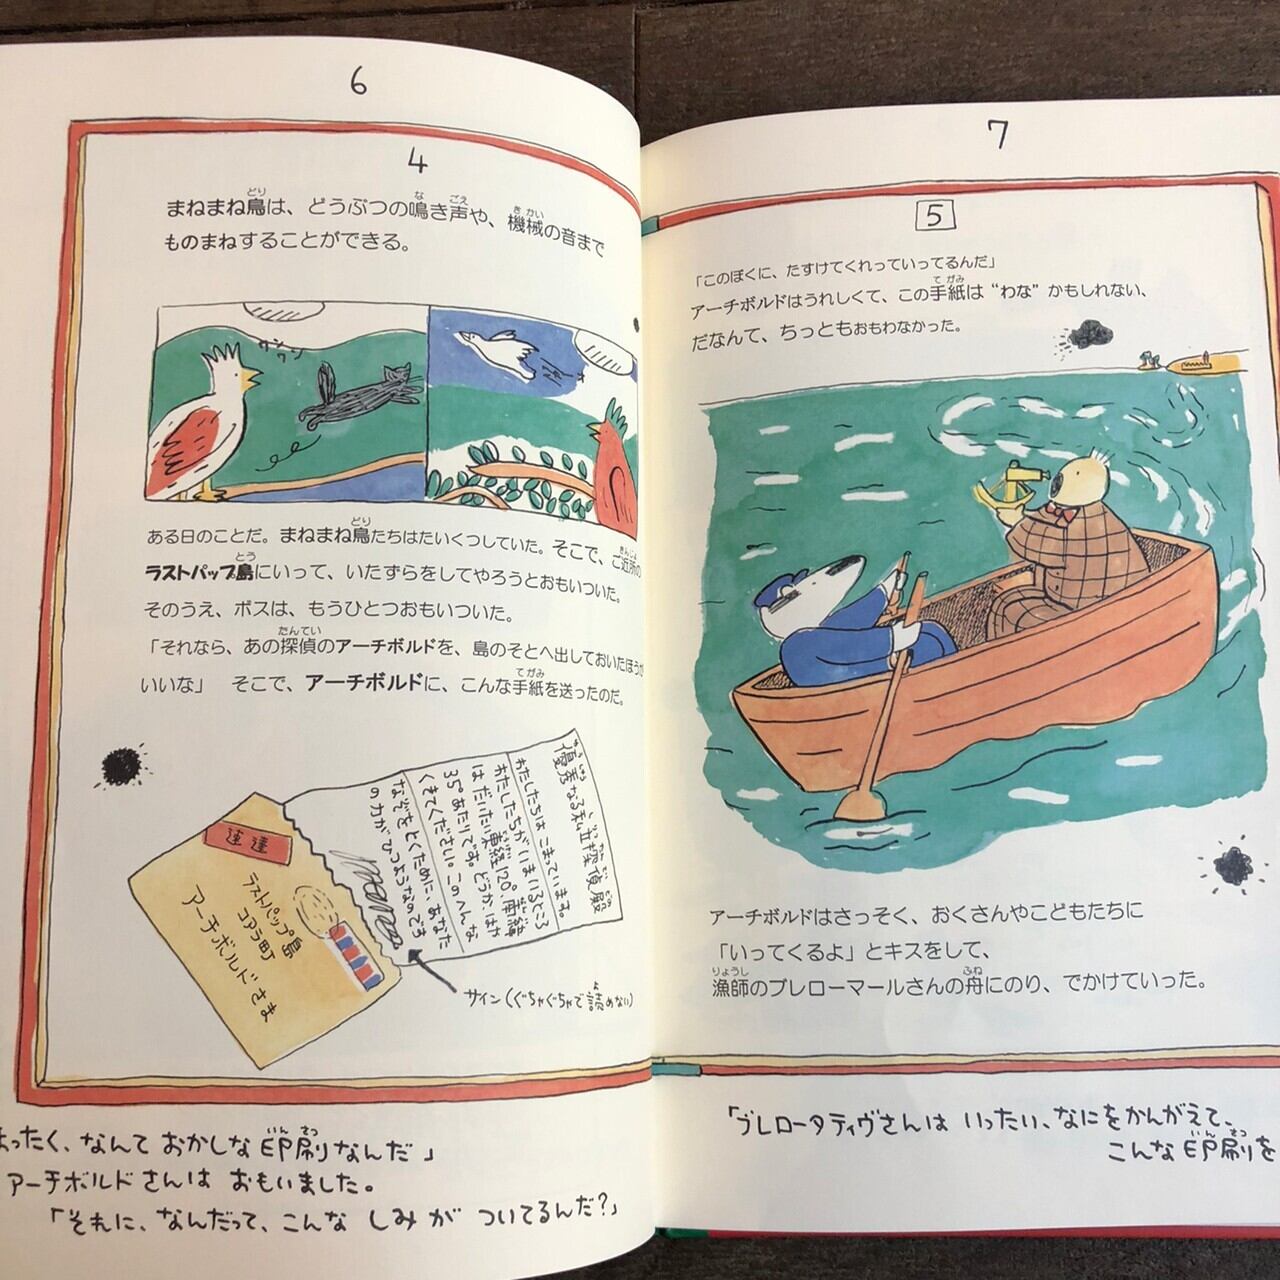 6
4
まねまね鳥は、どうぶつの鳴き声や、機械の音まで
ものまねすることができる。
ワンワン
ある日のことだ。まねまね鳥たちはたいくつしていた。そこで、ご近所の
ラストパップ島にいって、いたずらをしてやろうとおもいついた。
そのうえ、ボスは、もうひとつおもいついた。
「それなら、あの探偵のアーチボルドを、島のそとへ出しておいたほうが
いいな」 そこで、アーチボルドに、こんな手紙を送ったのだ。
優秀なる私立探偵殿
わたしたちは こまっています。
わたしたちが いまいるところ
は だいたい 東経120° 南緯
35°あたりです。どうか、はや
くきてください。このへんな
なぞをとくために、あなた
の力がひつようなのです
速達
ラストパップ島
コアラ町
アーチボルドさま
サイン(ぐちゃぐちゃで読めない)
ったく、なんて おかしな 印刷なんだ」
アーチボルドさんは おもいました。
「それに、なんだって、こんな しみが ついてるんだ?」
7
5
「このぼくに、たすけてくれっていってるんだ」
アーチボルドはうれしくて、この手紙は“わな”かもしれない、
だなんて、ちっともおもわなかった。
アーチボルドはさっそく、おくさんやこどもたちに
「いってくるよ」とキスをして、
漁師のプレローマールさんの舟にのり、でかけていった。
「プレロータティヴさんは いったい、なにをかんがえて、
こんな 印刷を